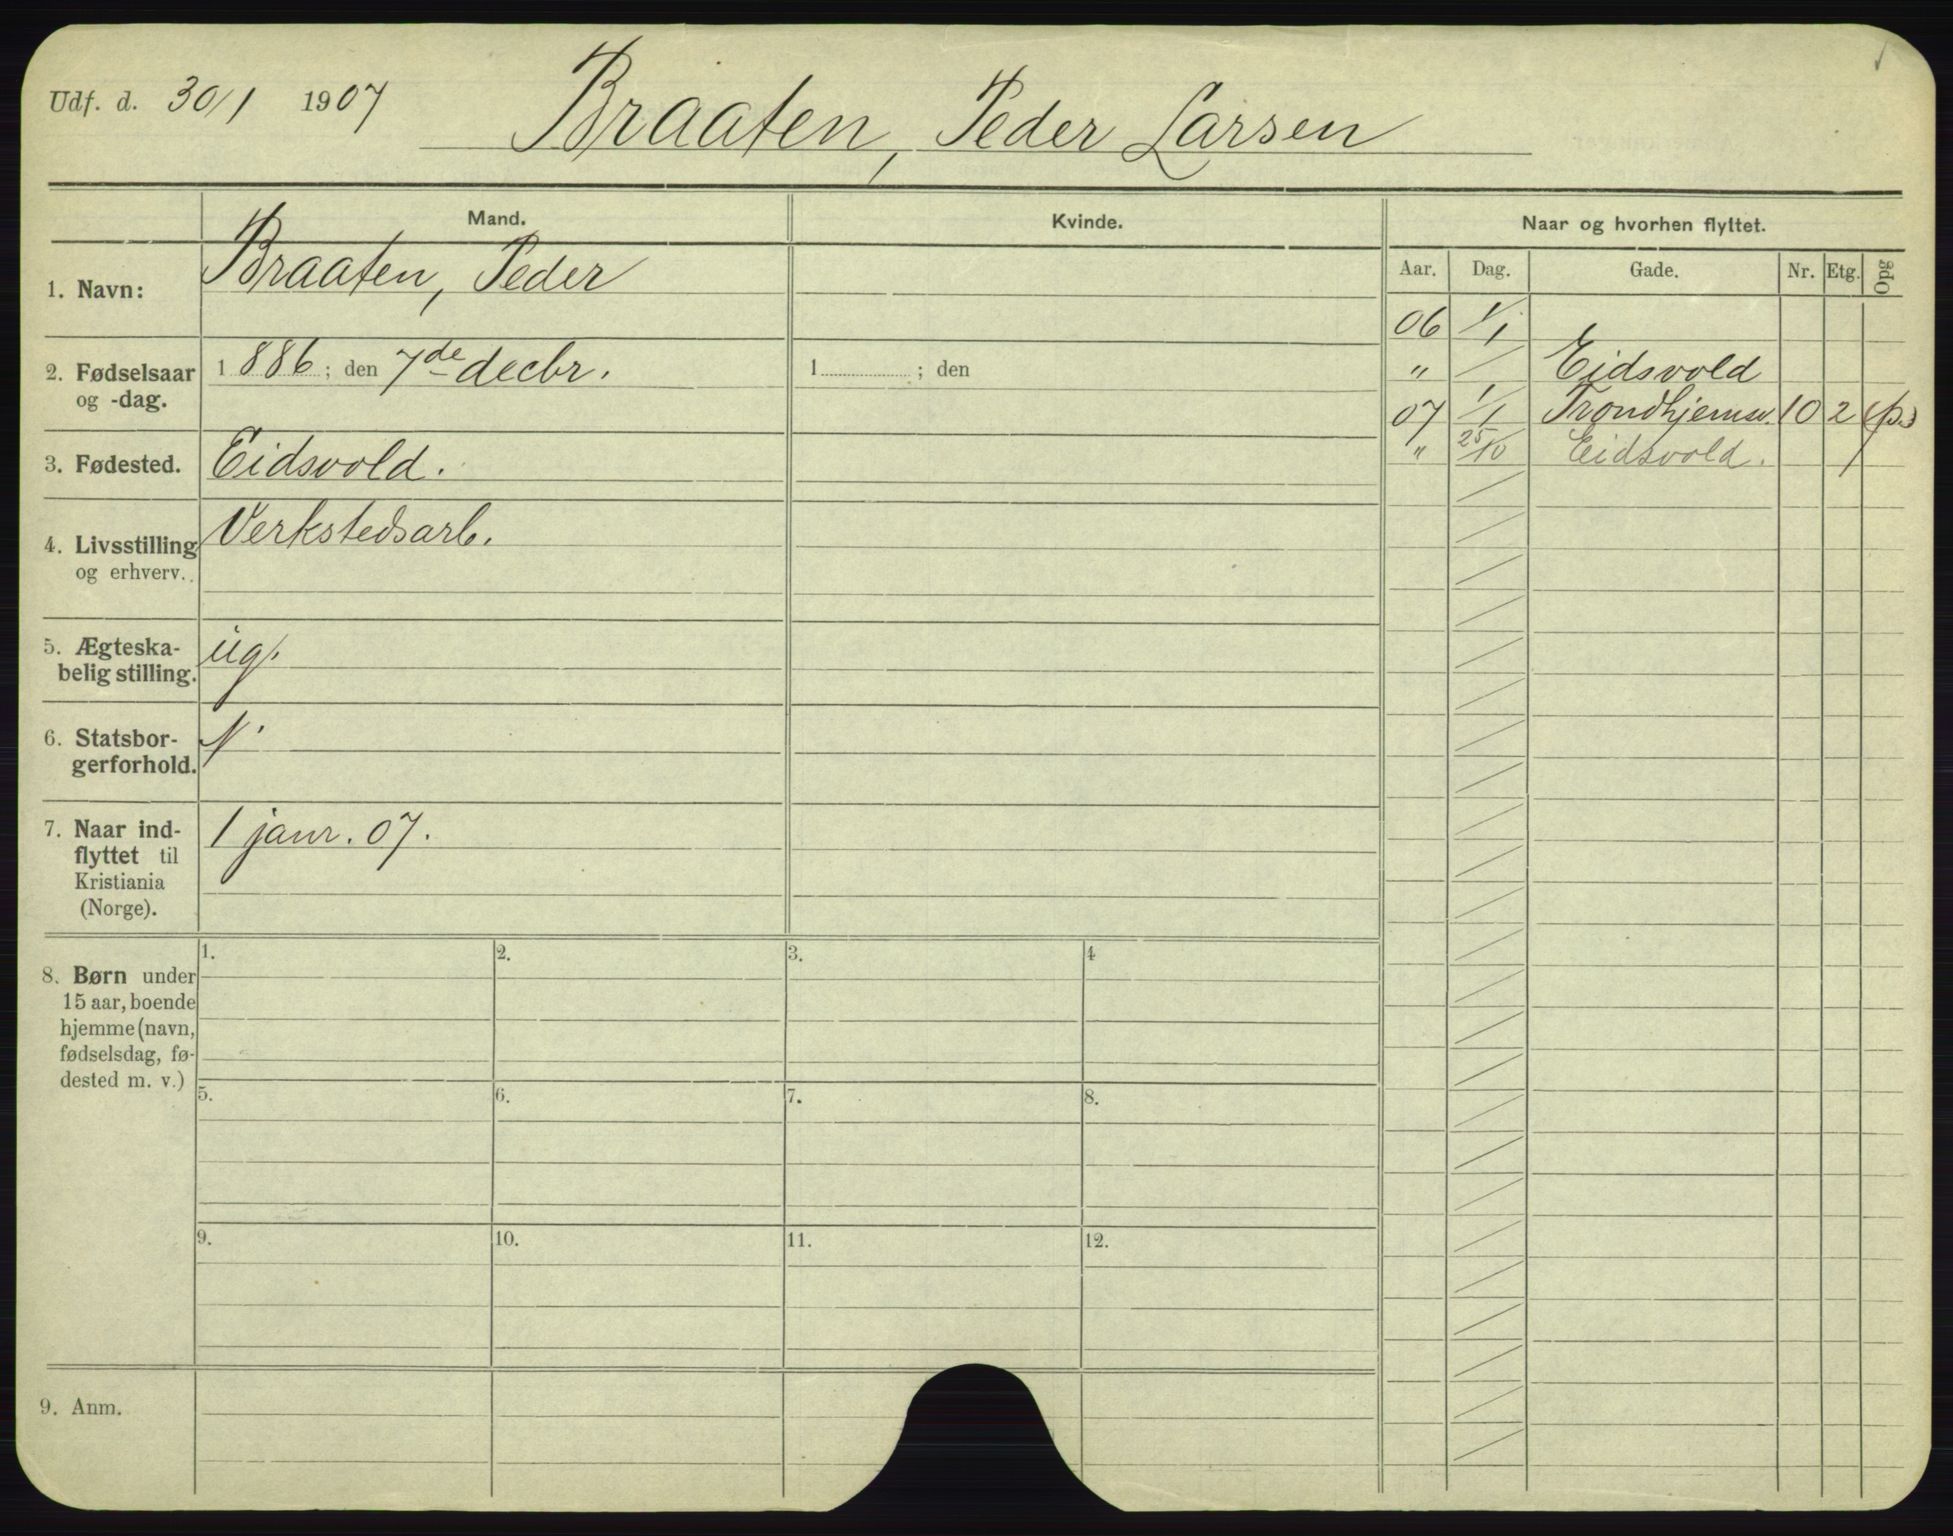 Udf. d. 30/1 1907
Braaten, Peder Larsen
Mand.
Kvinde.
Naar og hvorhen flyttet.
Aar. Dag. Gade. Nr. Etg. Opg
1. Navn: Braaten, Peder
2. Fødselsaar og -dag.
1886; den 7de decbr.
1 ; den
3. Fødested. Eidsvold.
4. Livsstilling og erhverv.. Verkstedsarb.
5. Ægteska-
belig stilling. ug.
6. Statsbor-
gerforhold. N.
7. Naar ind-
flyttet til
Kristiania
(Norge).
1 janr. 07.
06 1/1
" Eidsvold
07 1/1 Trondhjemsv. 10 2 (p.)
" 25/10 Eidsvold.
8. Børn under
15 aar, boende
hjemme (navn,
fødselsdag, fø-
dested m. v.)
1. 2. 3. 4
5. 6. 7. 8.
9. 10. 11. 12.
9. Anm.